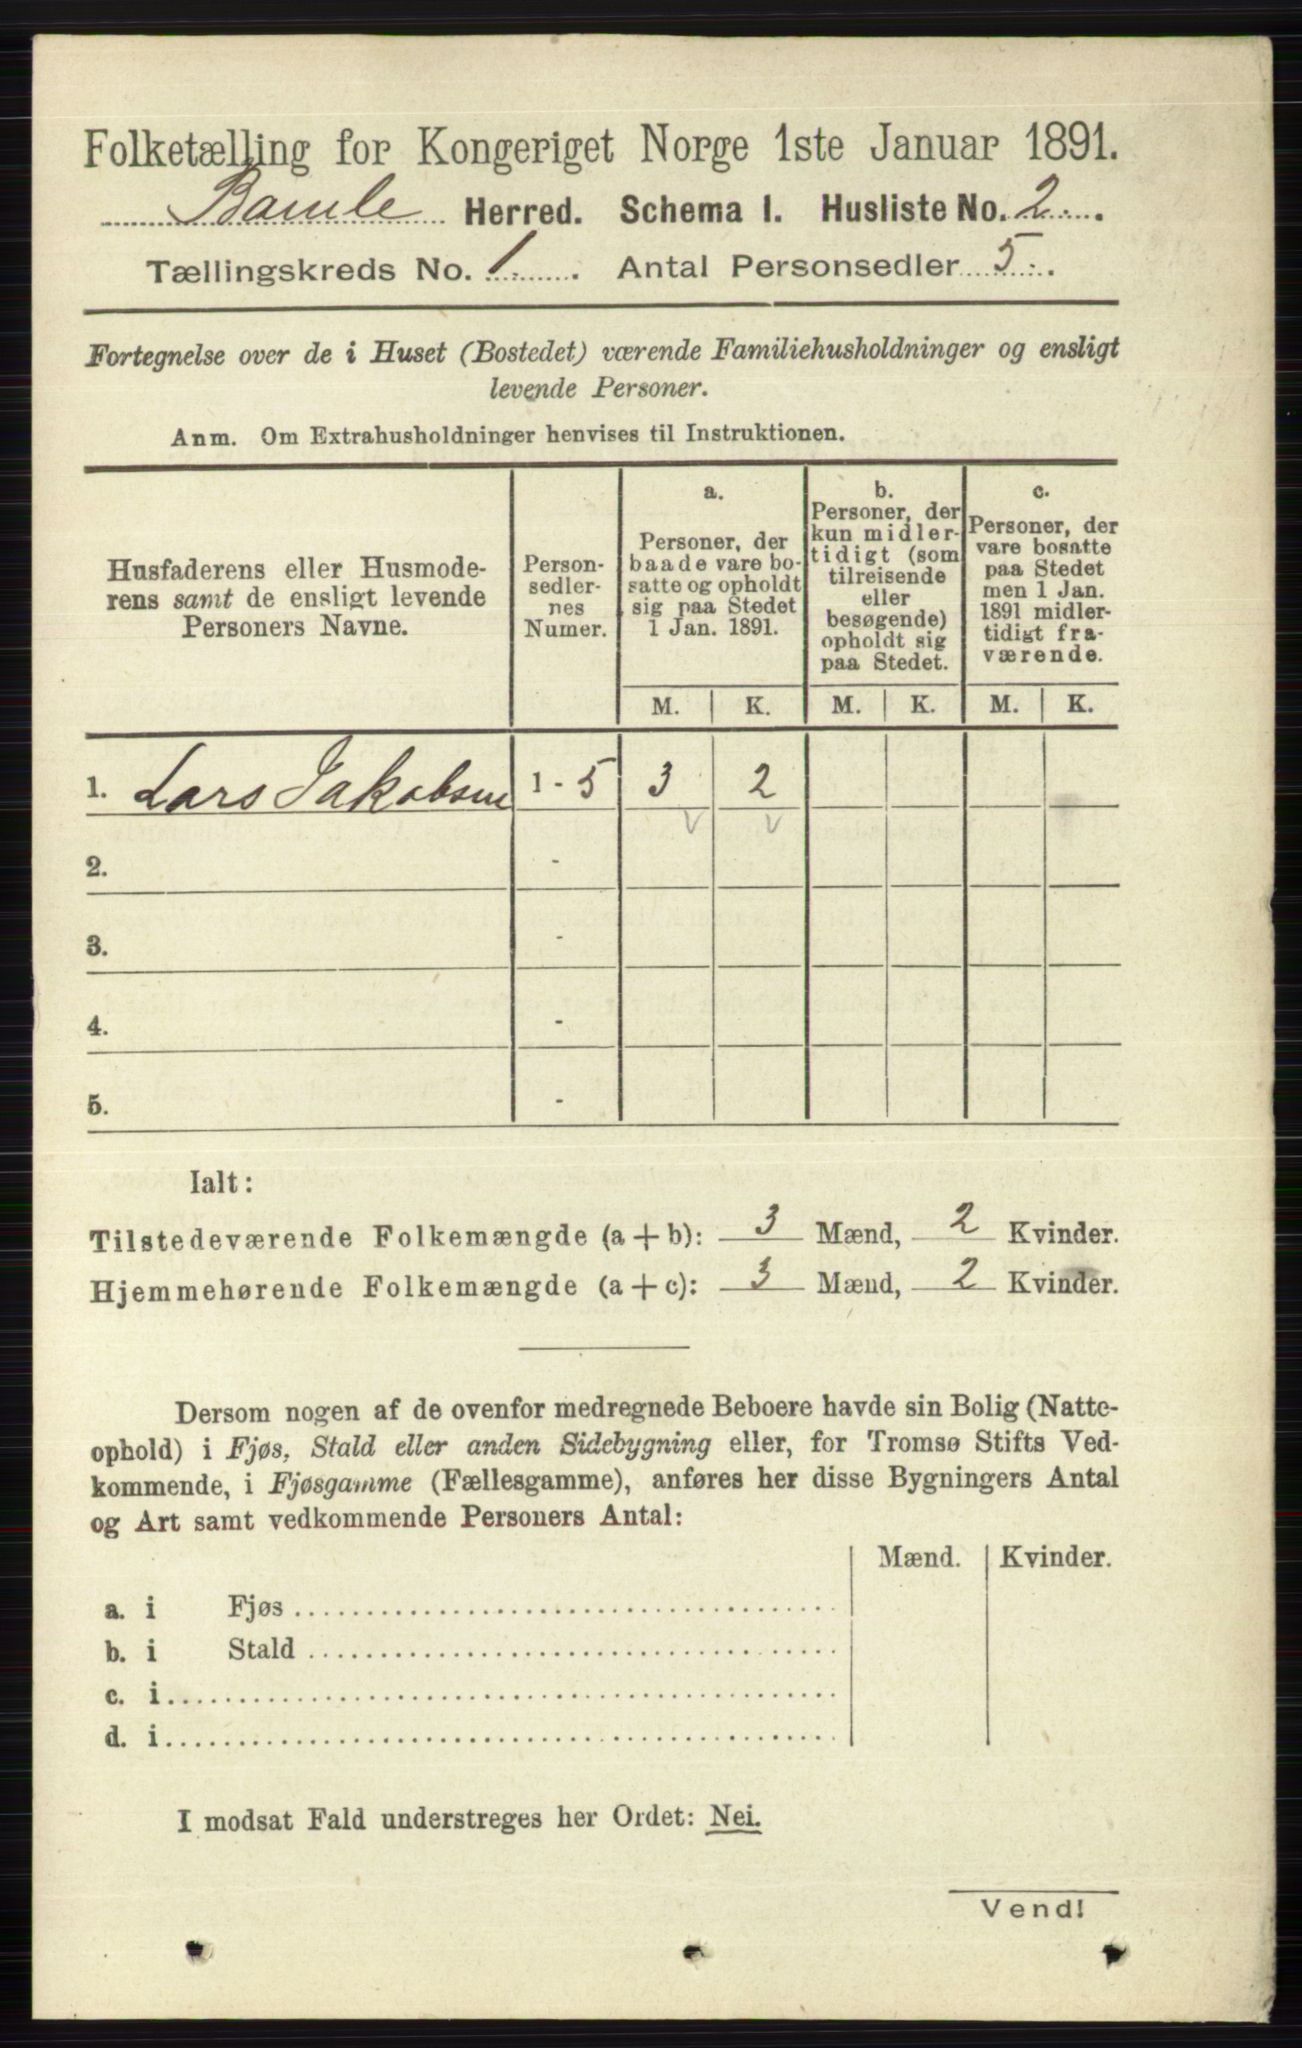 Folketælling for Kongeriget Norge 1ste Januar 1891.
Bamle Herred. Schema I. Husliste No. 2
Tællingskreds No. 1. Antal Personsedler 5.
Fortegnelse over de i Huset (Bostedet) værende Familiehusholdninger og ensligt
levende Personer.
Anm. Om Extrahusholdninger henvises til Instruktionen.
Husfaderens eller Husmode-
rens samt de ensligt levende
Personers Navne.
Person-
sedler-
nes
Numer.
a.
Personer, der
baade vare bo-
satte og opholdt
sig paa Stedet
1 Jan. 1891.
b.
Personer, der
kun midler-
tidigt (som
tilreisende
eller
besøgende)
opholdt sig
paa Stedet.
c.
Personer, der
vare bosatte
paa Stedet
men 1 Jan.
1891 midler-
tidigt fra-
værende.
M. K. M. K. M. K.
1. Lars Jakobsen 1 - 5 3 2
2. -
3. -
4. -
5. -
Ialt:
Tilstedeværende Folkemængde (a + b): 3 Mænd, 2 Kvinder.
Hjemmehørende Folkemængde (a + c): 3 Mænd, 2 Kvinder.
Dersom nogen af de ovenfor medregnede Beboere havde sin Bolig (Natte-
ophold) i Fjøs, Stald eller anden Sidebygning eller, for Tromsø Stifts Ved-
kommende, i Fjøsgamme (Fællesgamme), anføres her disse Bygningers Antal
og Art samt vedkommende Personers Antal:
Mænd. Kvinder.
a. i Fjøs
b. i Stald
c. i
d. i
I modsat Fald understreges her Ordet: Nei.
Vend!